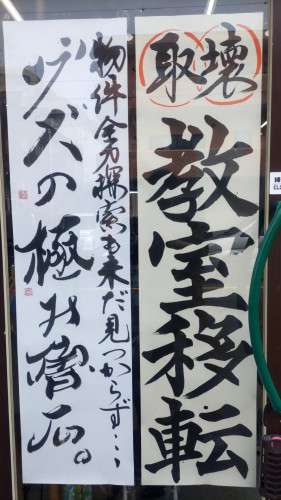 取壊
教室移転
物件全力探索も未だ見つからず…
ゲスの極み